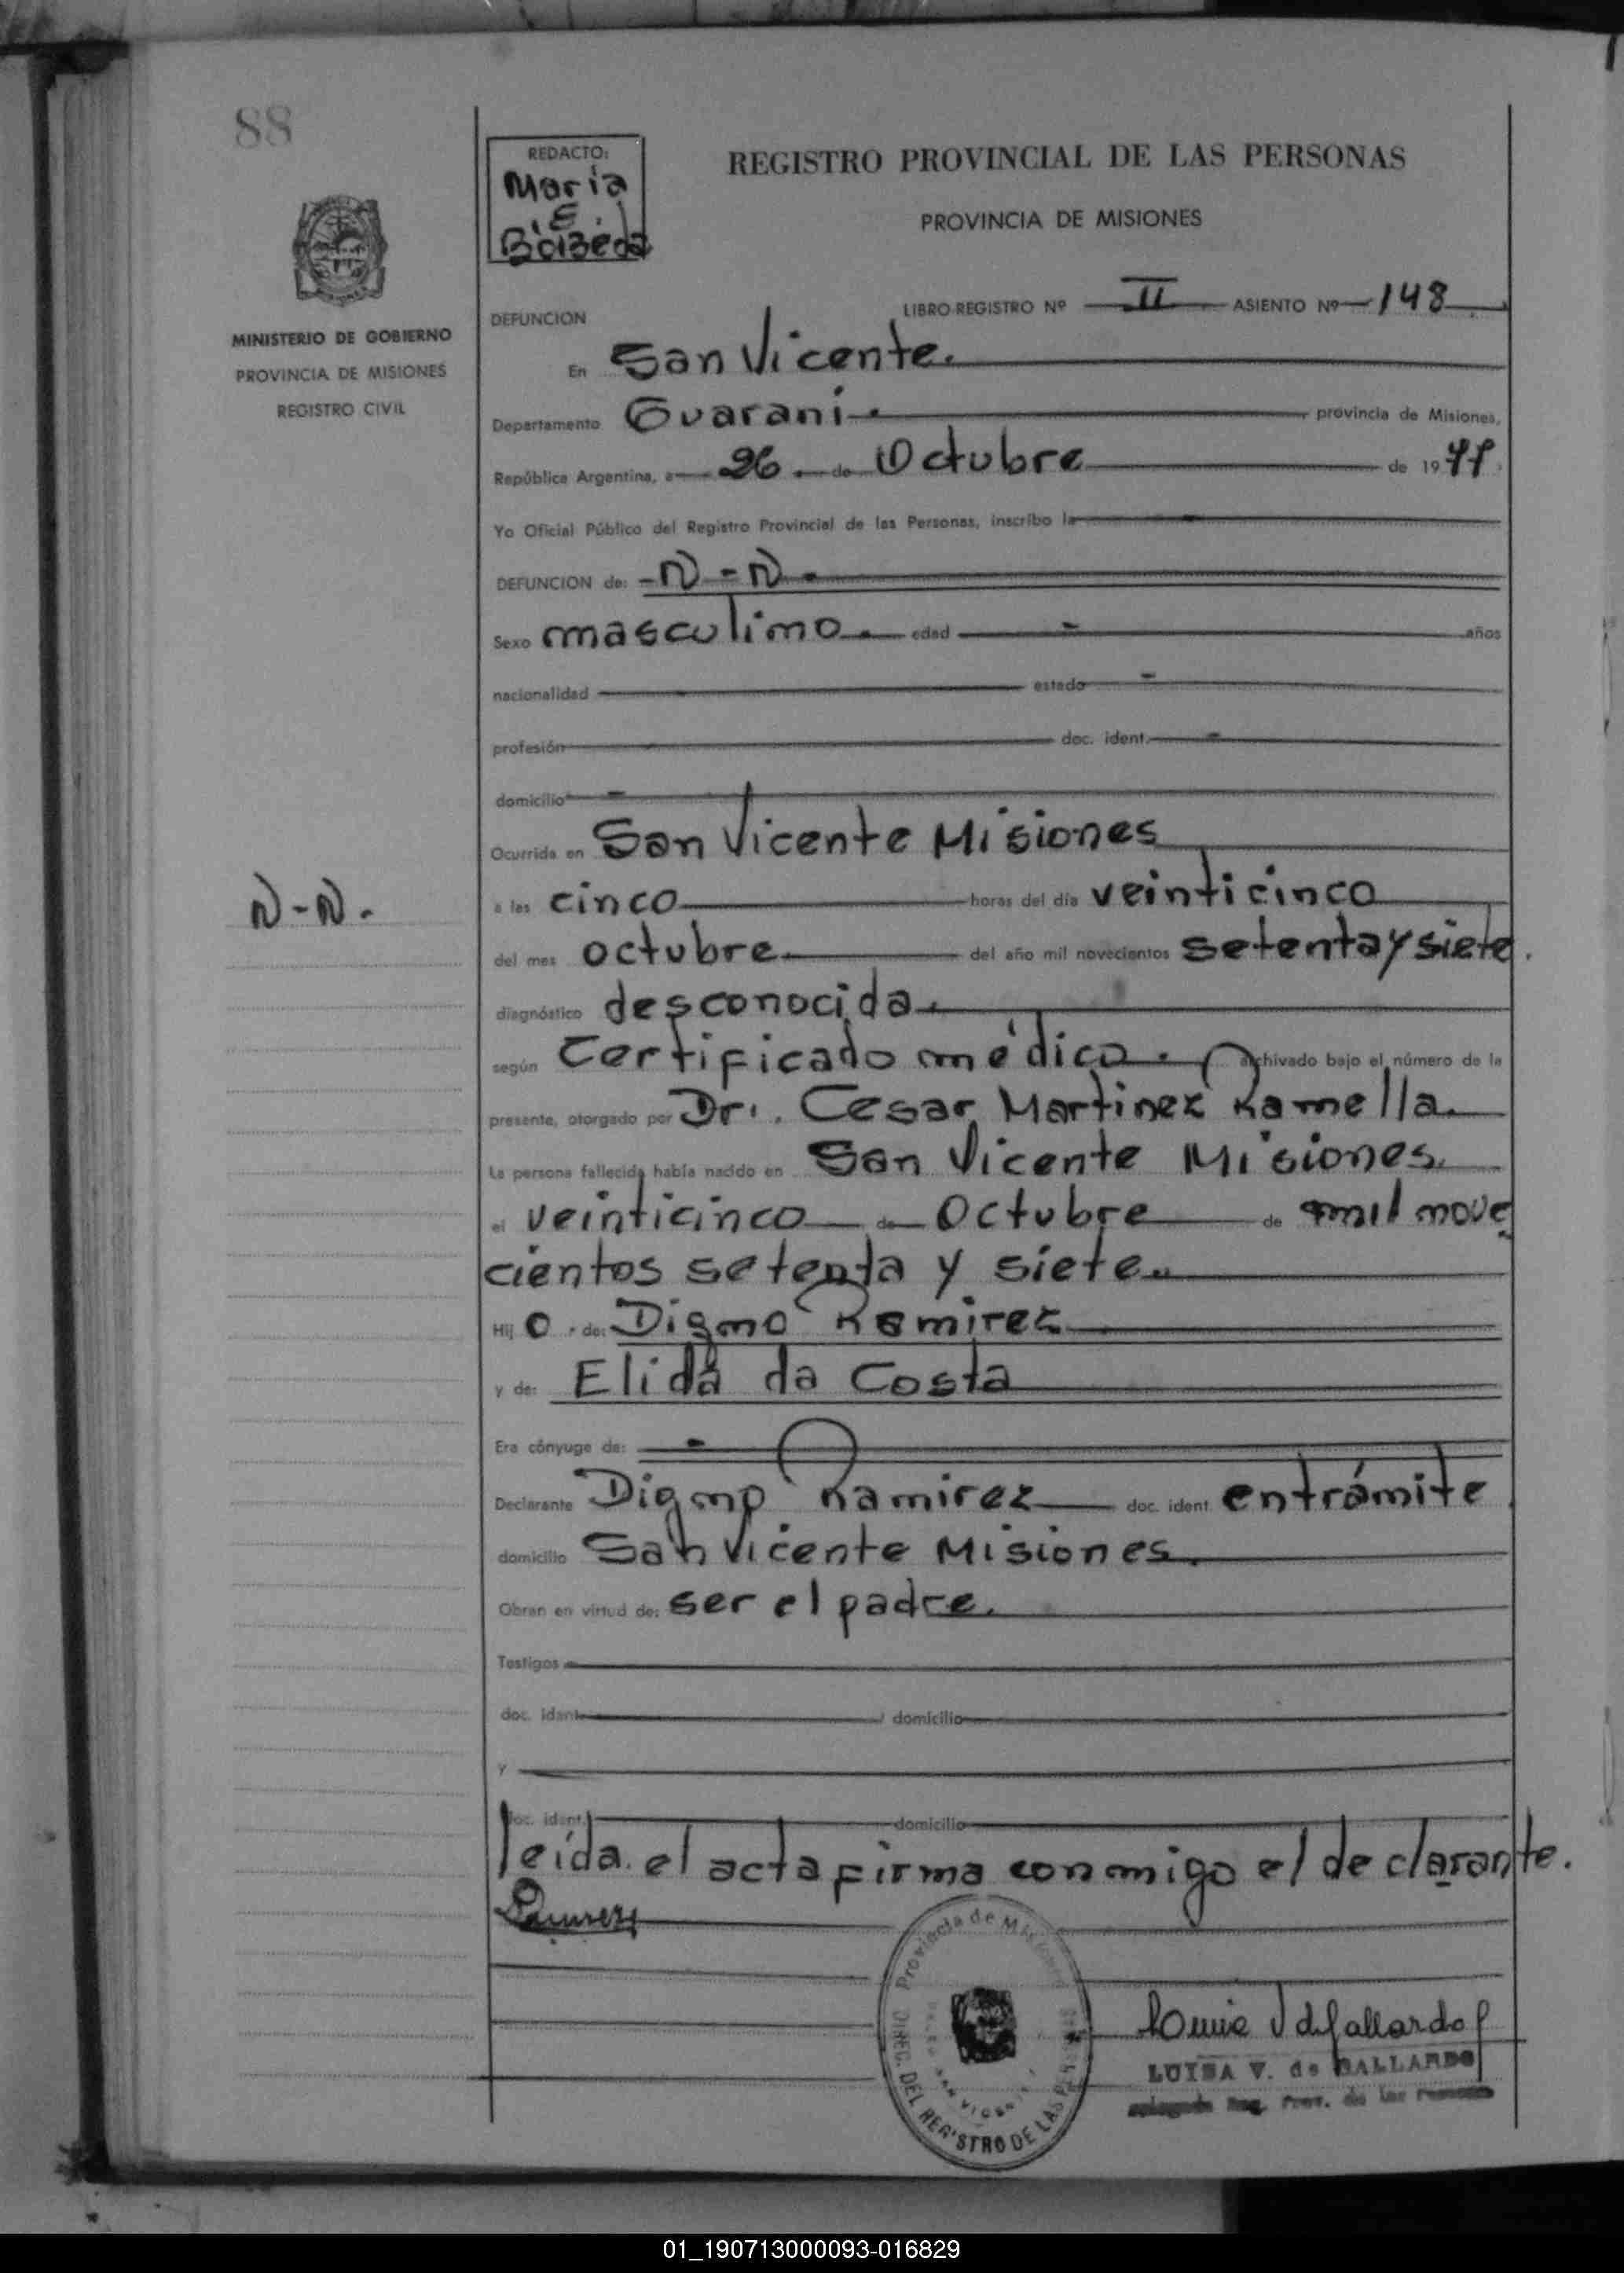 88
REDACTO:
Maria
E.
Boizeda
REGISTRO PROVINCIAL DE LAS PERSONAS
PROVINCIA DE MISIONES
MINISTERIO DE GOBIERNO
PROVINCIA DE MISIONES
REGISTRO CIVIL
LIBRO-REGISTRO Nº II ASIENTO Nº 148
DEFUNCION
En San Vicente.
Departamento Guarani. provincia de Misiones,
República Argentina, a 26. de Octubre de 1977.
Yo Oficial Público del Registro Provincial de las Personas, inscribo la
DEFUNCION de: -N-N.
Sexo masculino. edad - años
nacionalidad estado -
profesión doc. ident. -
domicilio -
Ocurrida en San Vicente Misiones
N-N.
a las cinco horas del día veinticinco
del mes octubre del año mil novecientos setenta y siete.
diagnóstico desconocida.
según Certificado médico. archivado bajo el número de la
presente, otorgado por Dr. Cesar Martinez Ramella.
La persona fallecida había nacido en San Vicente Misiones.
el veinticinco de Octubre de mil nove
cientos setenta y siete.
Hij o de: Digno Ramirez
y de: Elida da Costa
Era cónyuge de: -
Declarante Digno Ramirez doc. ident. en trámite
domicilio San Vicente Misiones.
Obran en virtud de: ser el padre.
Testigos
doc. ident. domicilio
y
doc. ident. domicilio
leída el acta firma conmigo el declarante.
Provincia de Misiones
DIREC. DEL REGISTRO DE LAS PERSONAS
SAN VICENTE
LUISA V. de GALLARDO
Delegada Reg. Prov. de las Personas
01_190713000093-016829